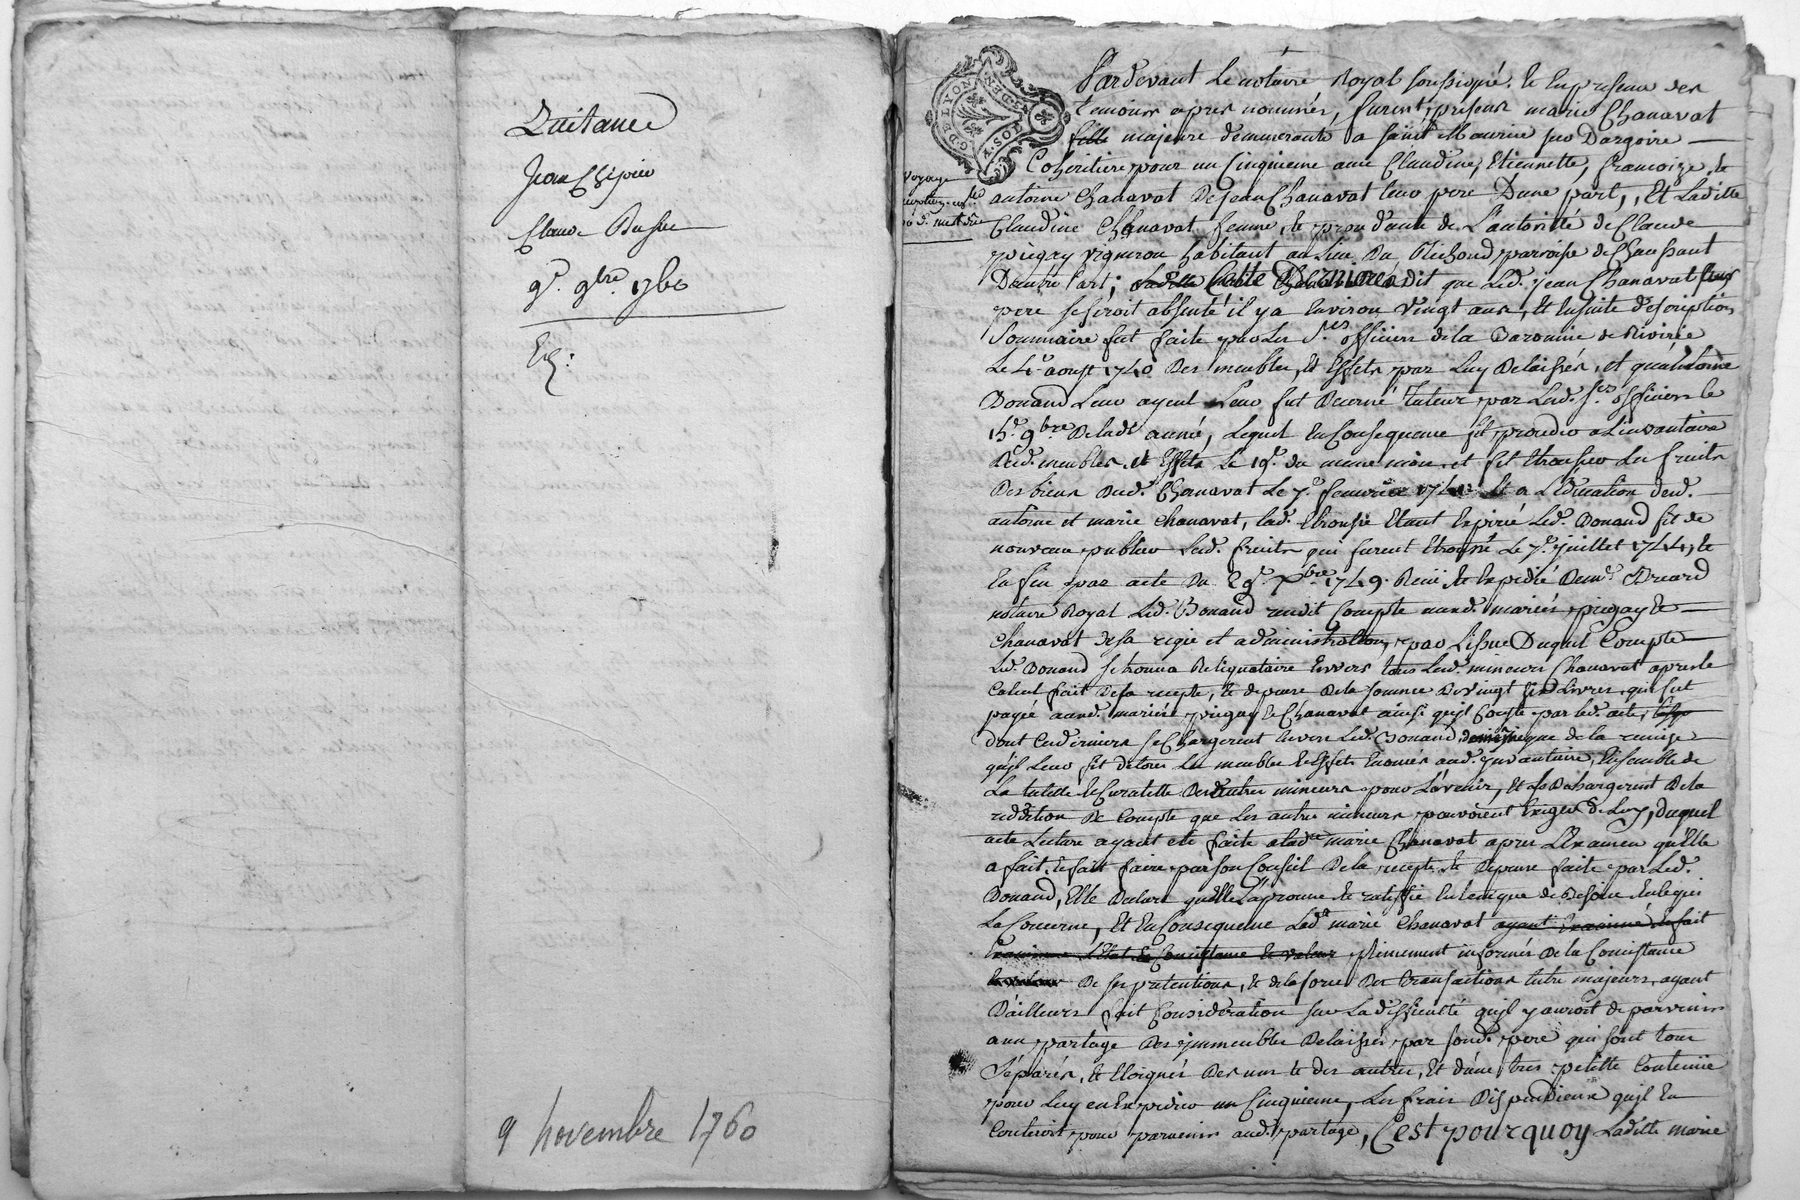 Quitance
Jean
Claude
9e. 9bre. 1760
9 novembre 1760
G. DE LYON
Pardevant Le notaire Royal soussigné, & En presence des
temoins apres nommés, furent presens marie Chanavat
fille majeure demeurante a saint Maurice sur Dargoire
Cohéritiere pour un Cinquieme avec Claudine, Etiennette, francoize, &
antoine Chanavat De Jean Chanavat leur pere D'une part, Et Laditte
Claudine Chanavat femme, & procédante de L'autorité de Claude
pingay vigneron habitant au Lieu Du Richoud parroisse de Chaussant
Dautre Part; dit que Led. Jean Chanavat leur
pere se seroit absenté il y a Environ vingt ans, & Ensuite description
Sommaire fut faite par Les Srs. officiers de la Baronnie de Riverie
Le 4e. aoust 1740 Des meubles, & Effets par Luy Delaissés, et qu'antoine
Bonand Leur ayeul Leur fut Decerné tuteur par Lesd. Srs. officiers le
15e. 9bre De lade. année, Lequel En Consequence fit proceder a L'inventaire
Desd. meubles & Effets Le 19e. du meme mois, et fit Etrousser Les fruits
Des biens Dud. Chanavat Le 7e. feuvrier & a L'éducation desd.
antoine et marie Chanavat, lad. Etrousse Etant Expirée Led. Bonand fit de
nouveau publier Lesd. fruits qui furent Etroussé Le 7e. juillet 1744, &
En fin par acte Du 29e. Xbre 1749. Receü & Expedié De me.
notaire Royal Led. Bonand rendit Compte auxd. mariés pingay &
Chanavat de sa regie et administration, par L'issue Duquel Compte
Led. Bonand se trouva Reliquataire Envers tous Lesd. mineurs Chanavat apres le
Calcul fait de sa recepte, & depense De la somme De vingt six Livres, qui fut
payée auxd. mariés pingay & Chanavat ainsi qu'il Conste par led. acte,
dont Ces derniers se Chargerent Envers Led. Bonand, de meme que de la remise
qu'il leur fit de tous Les meubles & Effets Enoncés aud. jnvantaire, Ensemble de
La tutelle & Curatelle Des autres mineurs pour L'avenir, Et Le Dechargerent De la
reddition De Compte que Les autres mineurs pouvoient Exiger de Luy, Duquel
acte Lecture ayant eté faite a lade. marie Chanavat apres L'Examen qu'Elle
a fait, & fait faire par son Conseil De la recepte & Depense faite par Led.
Bonand, Elle Declare qu'elle L'aprouve & ratiffie En tant que de Besoin En ce qui
La Concerne, Et En Consequence Lade. marie Chanavat ayant Examiné & fait
Examiner L'Etat & Consistance & valeur pleinement informée De la Consistance
De ses pretentions, & de la force Des transactions Entre majeurs, ayant
D'ailleurs fait Consideration sur La difficulté qu'il y auroit de parvenir
a un partage Des jmmeubles Delaissés par sond. pere qui sont tous
Séparés, & Eloignés Des uns & des autres, Et d'une tres petitte Contenüe
pour Luy en Expedier un Cinquieme, Les frais Dispendieux qu'il En
Couteroit pour parvenir aud. partage, C'est pourquoy Laditte marie